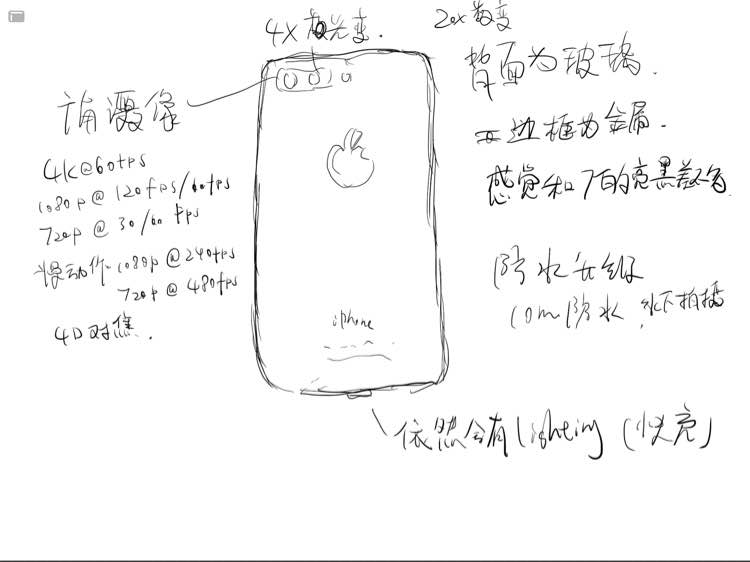 4X 光变. 20x数变
背面为玻璃.
边框为金属.
感觉和7的亮黑差不多
摄像
4K@60fps
1080p@120fps/60fps
720p@30/60fps
慢动作 1080p@240fps
720p@480fps
4D对焦.
防水升级
10m防水,水下拍摄
iphone
依然会有lighting(快充)